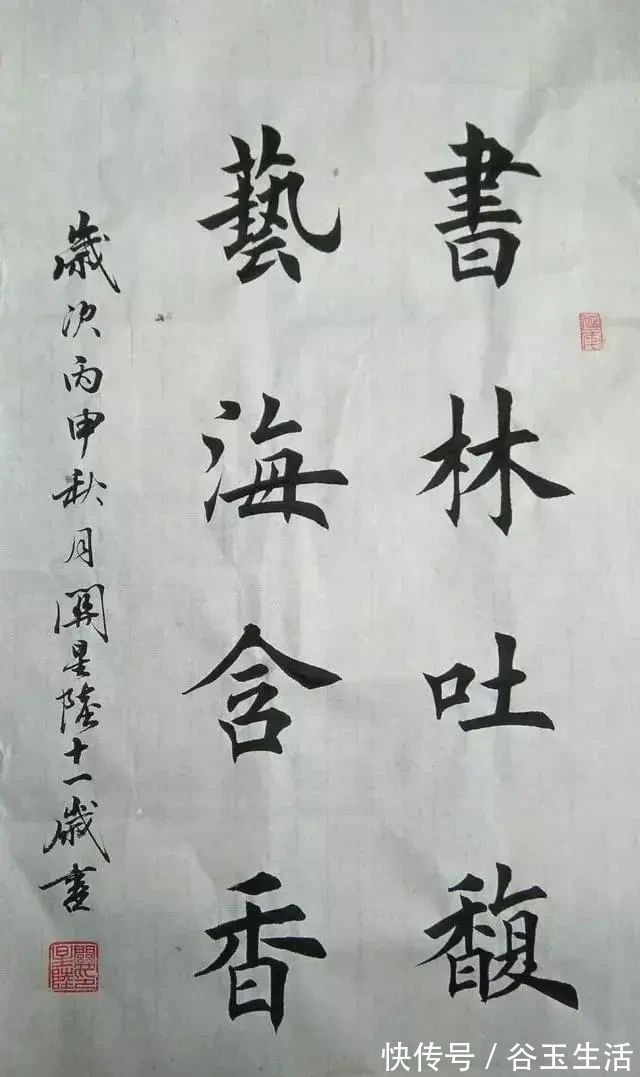 書林吐馥
藝海含香
歲次丙申秋月關星陸十一歲書
快传号/谷玉生活